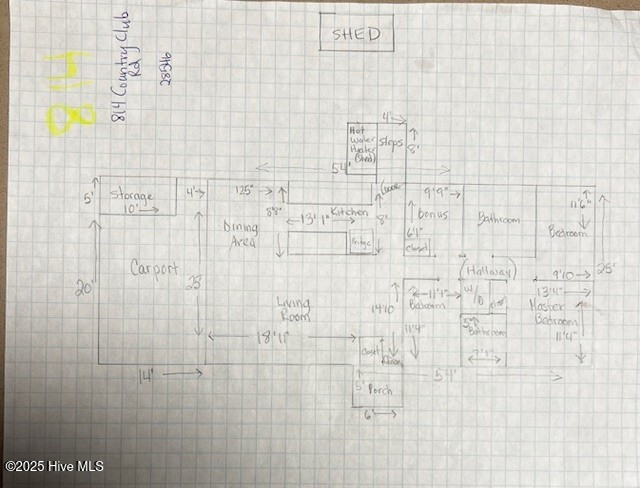 SHED
814
814 Country Club
Rd
28546
4'
Hot
Water
Heater
(Shed)
Steps
8'
54'
5'
Storage
10'
4'
125"
8'8"
13'1"
Kitchen
8'
Fridge
9'9"
Bonus
6'1"
closet
Bathroom
11'6"
Bedroom
Dining
Area
Carport
20'
25'
25'
(Hallway)
9'10
13'4"
Master
Bedroom
11'4"
W/
D
11'1"
Bedroom
14'10
11'4"
Living
Room
18'11"
Closet
5'
Bathroom
14'
5'
Porch
6'
54'
©2025 Hive MLS